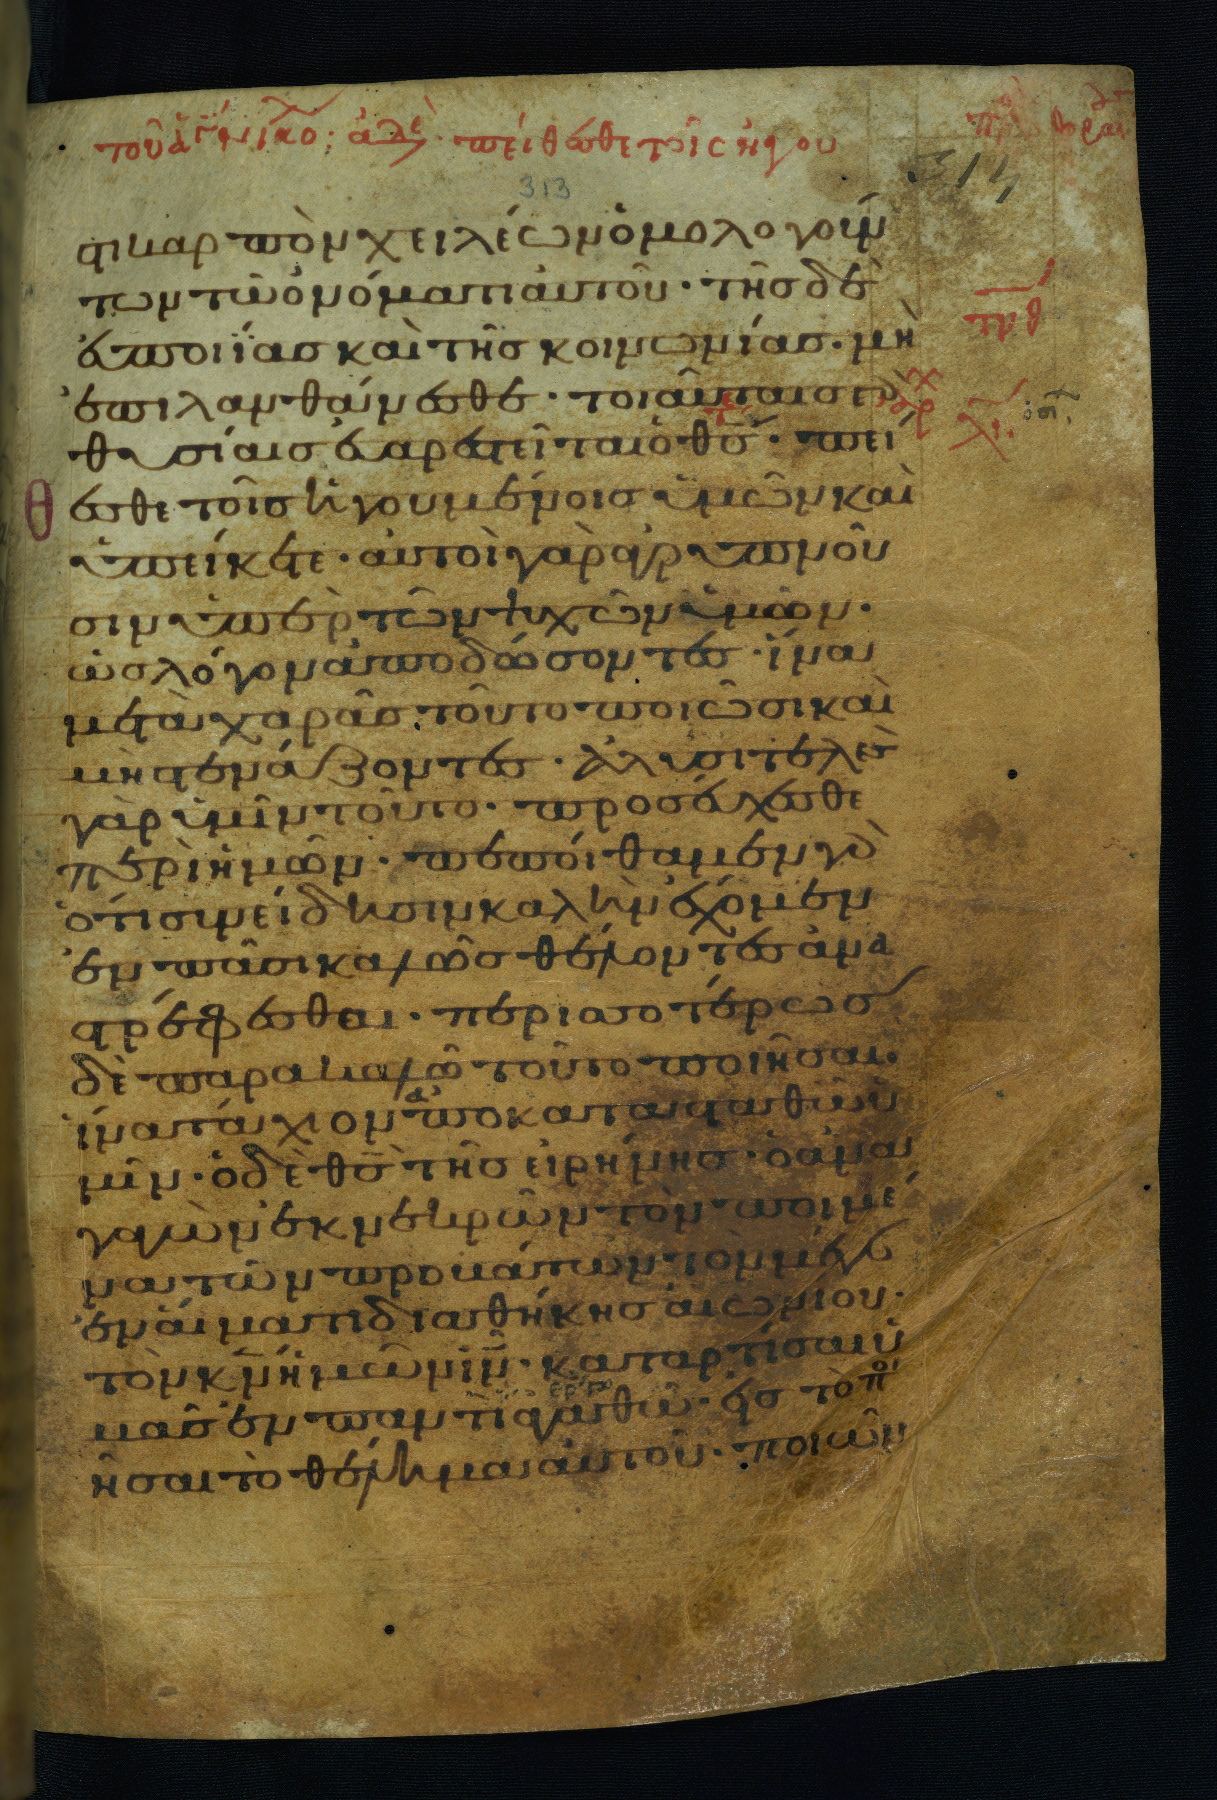 τοῦ ἁγ νικο: ἀδε· πείθεσθε τοῖς ηγου
314
313
τι καρπὸν χειλέων ὁμολογούν
των τῶ ὀνόματι αὐτοῦ· τῆς δὲ
εὐποιΐας καὶ τῆς κοινωνίας· μὴ
ἐπιλανθάνεσθε· τοιαύταις
θυσίαις εὐαρεστεῖται ὁ θς· πεί
θεσθε τοῖς ἡγουμένοις ὑμῶν καὶ
ὑπείκετε· αὐτοὶ γὰρ ἀγρυπνοῦ
σιν ὑπὲρ τῶν ψυχῶν ὑμῶν·
ὡς λόγον ἀποδώσοντες· ἵνα
μετὰ χαρᾶς τοῦτο ποιῶσι καὶ
μὴ στενάζοντες· ἀλυσιτελὲς
γὰρ ὑμῖν τοῦτο· προσεύχεσθε
περὶ ἡμῶν· πεποίθαμεν γὰ
ὅτι συνείδησιν καλὴν ἔχομεν
ἐν πᾶσι καλῶς θέλοντες ἀνα
στρέφεσθαι· περισσοτέρως
δὲ παρακαλῶ τοῦτο ποιῆσαι·
ἵνα τάχιον ἀποκατασταθῶ ὑ
μῖν· ὁ δὲ θς τῆς εἰρήνης· ὁ ἀνα
γαγὼν ἐκ νεκρῶν τὸν ποιμέ
να τῶν προβάτων τὸν μέγα
ἐν αἵματι διαθήκης αἰωνίου·
τὸν κν ἡμῶν ιν· καταρτίσαι ὑ
μᾶς ἐν παντὶ ἔργω ἀγαθῶ· εἰς τὸ ποι
ῆσαι τὸ θέλημα αὐτοῦ· ποιῶν